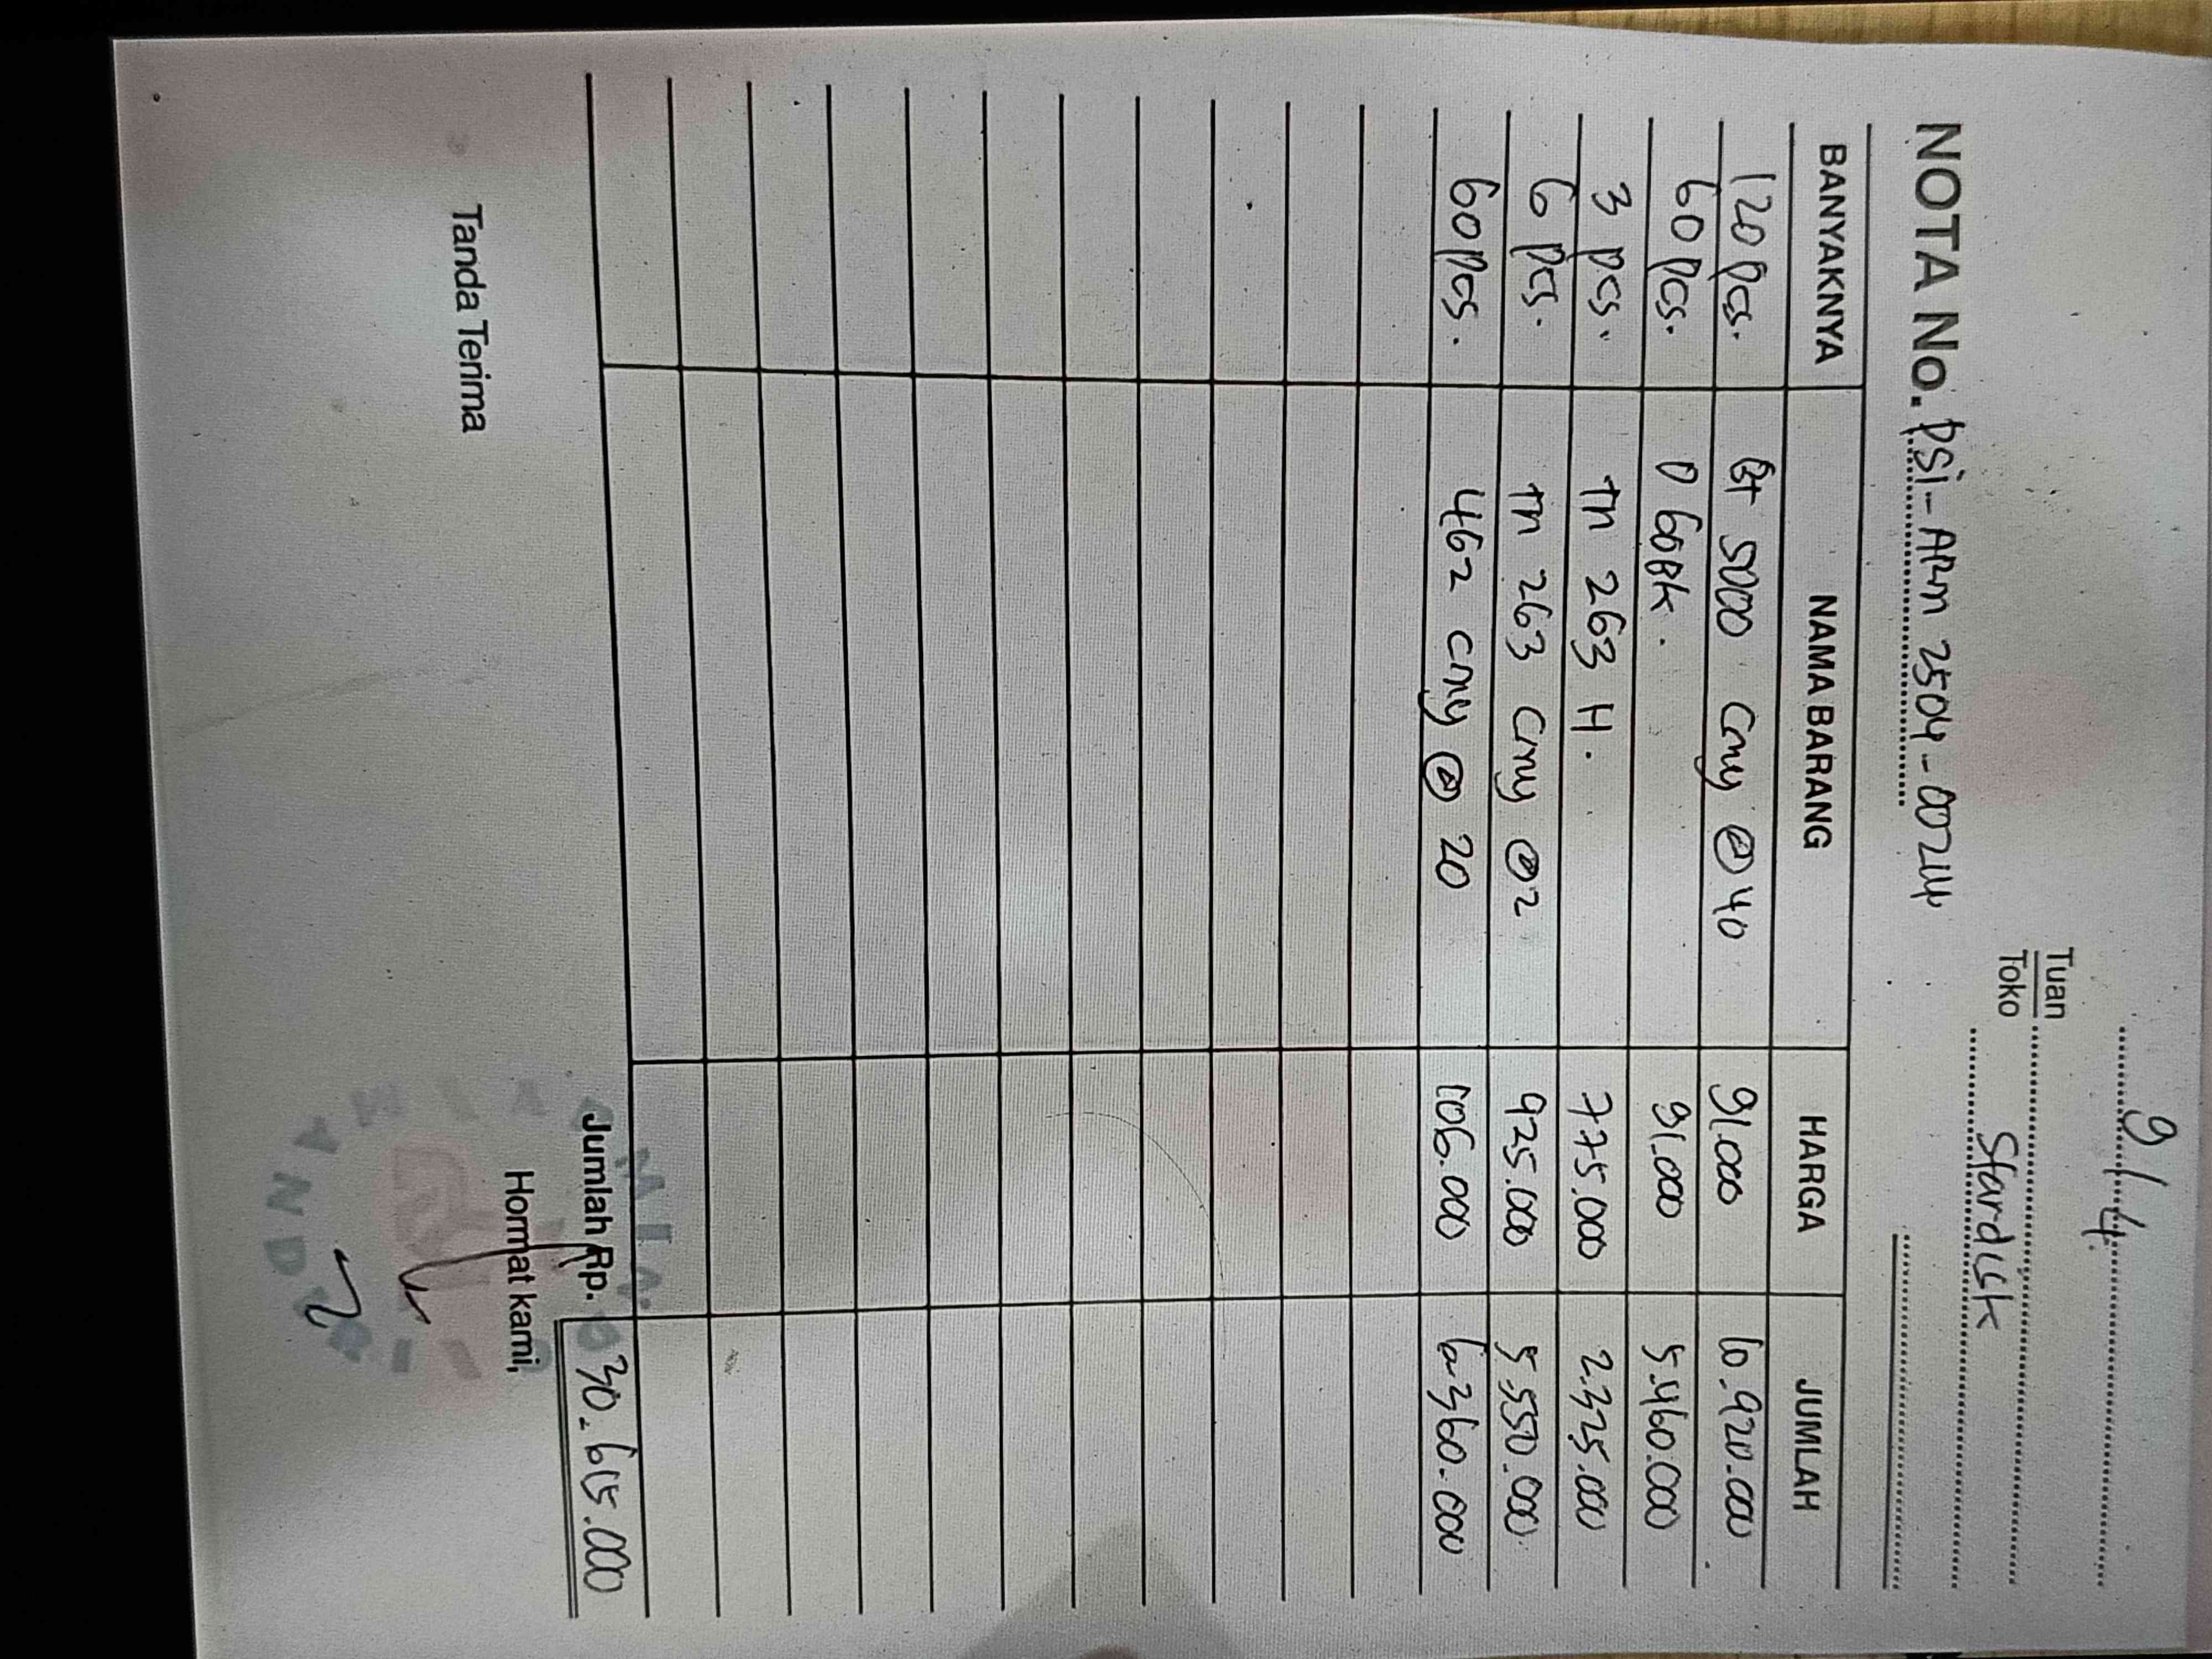 9/4
Tuan
Toko Stardisk
NOTA No. PSi-ARM 2504-00244
BANYAKNYA NAMA BARANG HARGA JUMLAH
120 pcs. Bt 5000 Cmy @ 40 91.000 10.920.000
60 pcs. D 60Bk. 91.000 5.460.000
3 pcs. Tn 263 H. 775.000 2.325.000
6 pcs. Tn 263 Cmy @ 2 925.000 5.550.000
60 pcs. 462 cmy @ 20 106.000 6.360.000
Jumlah Rp. 30.615.000
Tanda Terima Hormat kami,